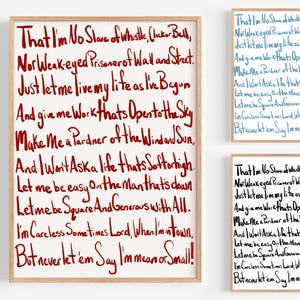 That I'm No Slave of Whistle, Clock or Bell,
Nor Weak-eyed Prisoner of Wall and Street.
Just let me live my life as I've Begun
And give me Work thats Open to the Sky
Make Me a Pardner of the Wind and Sun,
And I Wont Ask a life thats Soft or high.
Let me be easy On the Man thats down
Let me be Square And Generous with All.
I'm Careless Sometimes Lord, When I'm in Town,
But never let 'em Say I'm mean or Small!
That I'm No Slave of Whistle,
Nor Weak-eyed Prisoner of W
Just let me live my life as
And give me Work thats Op
Make Me a Pardner of the W
And I Wont Ask a life thats
Let me be easy On the Man
Let me be Square And Genero
I'm Careless Sometimes Lord,
But never let 'em Say I'm
That I'm No Slave of Whistle,
Nor Weak-eyed Prisoner of W
Just let me live my life as
And give me Work thats Op
Make Me a Pardner of the W
And I Wont Ask a life thats
Let me be easy On the Man
Let me be Square And Genero
I'm Careless Sometimes Lord, W
But never let 'em Say I'm